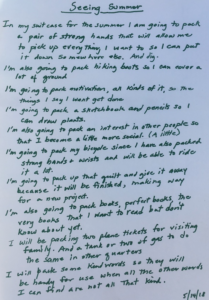 Seeing Summer
In my suitcase for the summer I am going to pack
a pair of strong hands that will allow me
to pick up everything I want to so I can put
it down somewhere else. And dig.
I'm also going to pack hiking boots so I can cover a
lot of ground
I'm going to pack motivation, all kinds of it, so the
things I say I want get done
I'm going to pack a sketchbook and pencils so I
can draw plants.
I'm also going to pack an interest in other people so
that I become a little more social. (A little)
I'm going to pack my bicycle since I have also packed
strong hands & wrists and will be able to ride
it a lot.
I'm going to pack up that quilt and give it away
because it will be finished, making way
for a new project.
I'm also going to pack books, perfect books, the
very books that I want to read but don't
know about yet.
I will be packing two plane tickets for visiting
family. And a tank or two of gas to do
the same in other quarters
I will pack some kind words so they will
be handy for use when all the other words
I can find are not all that kind.
5/14/18